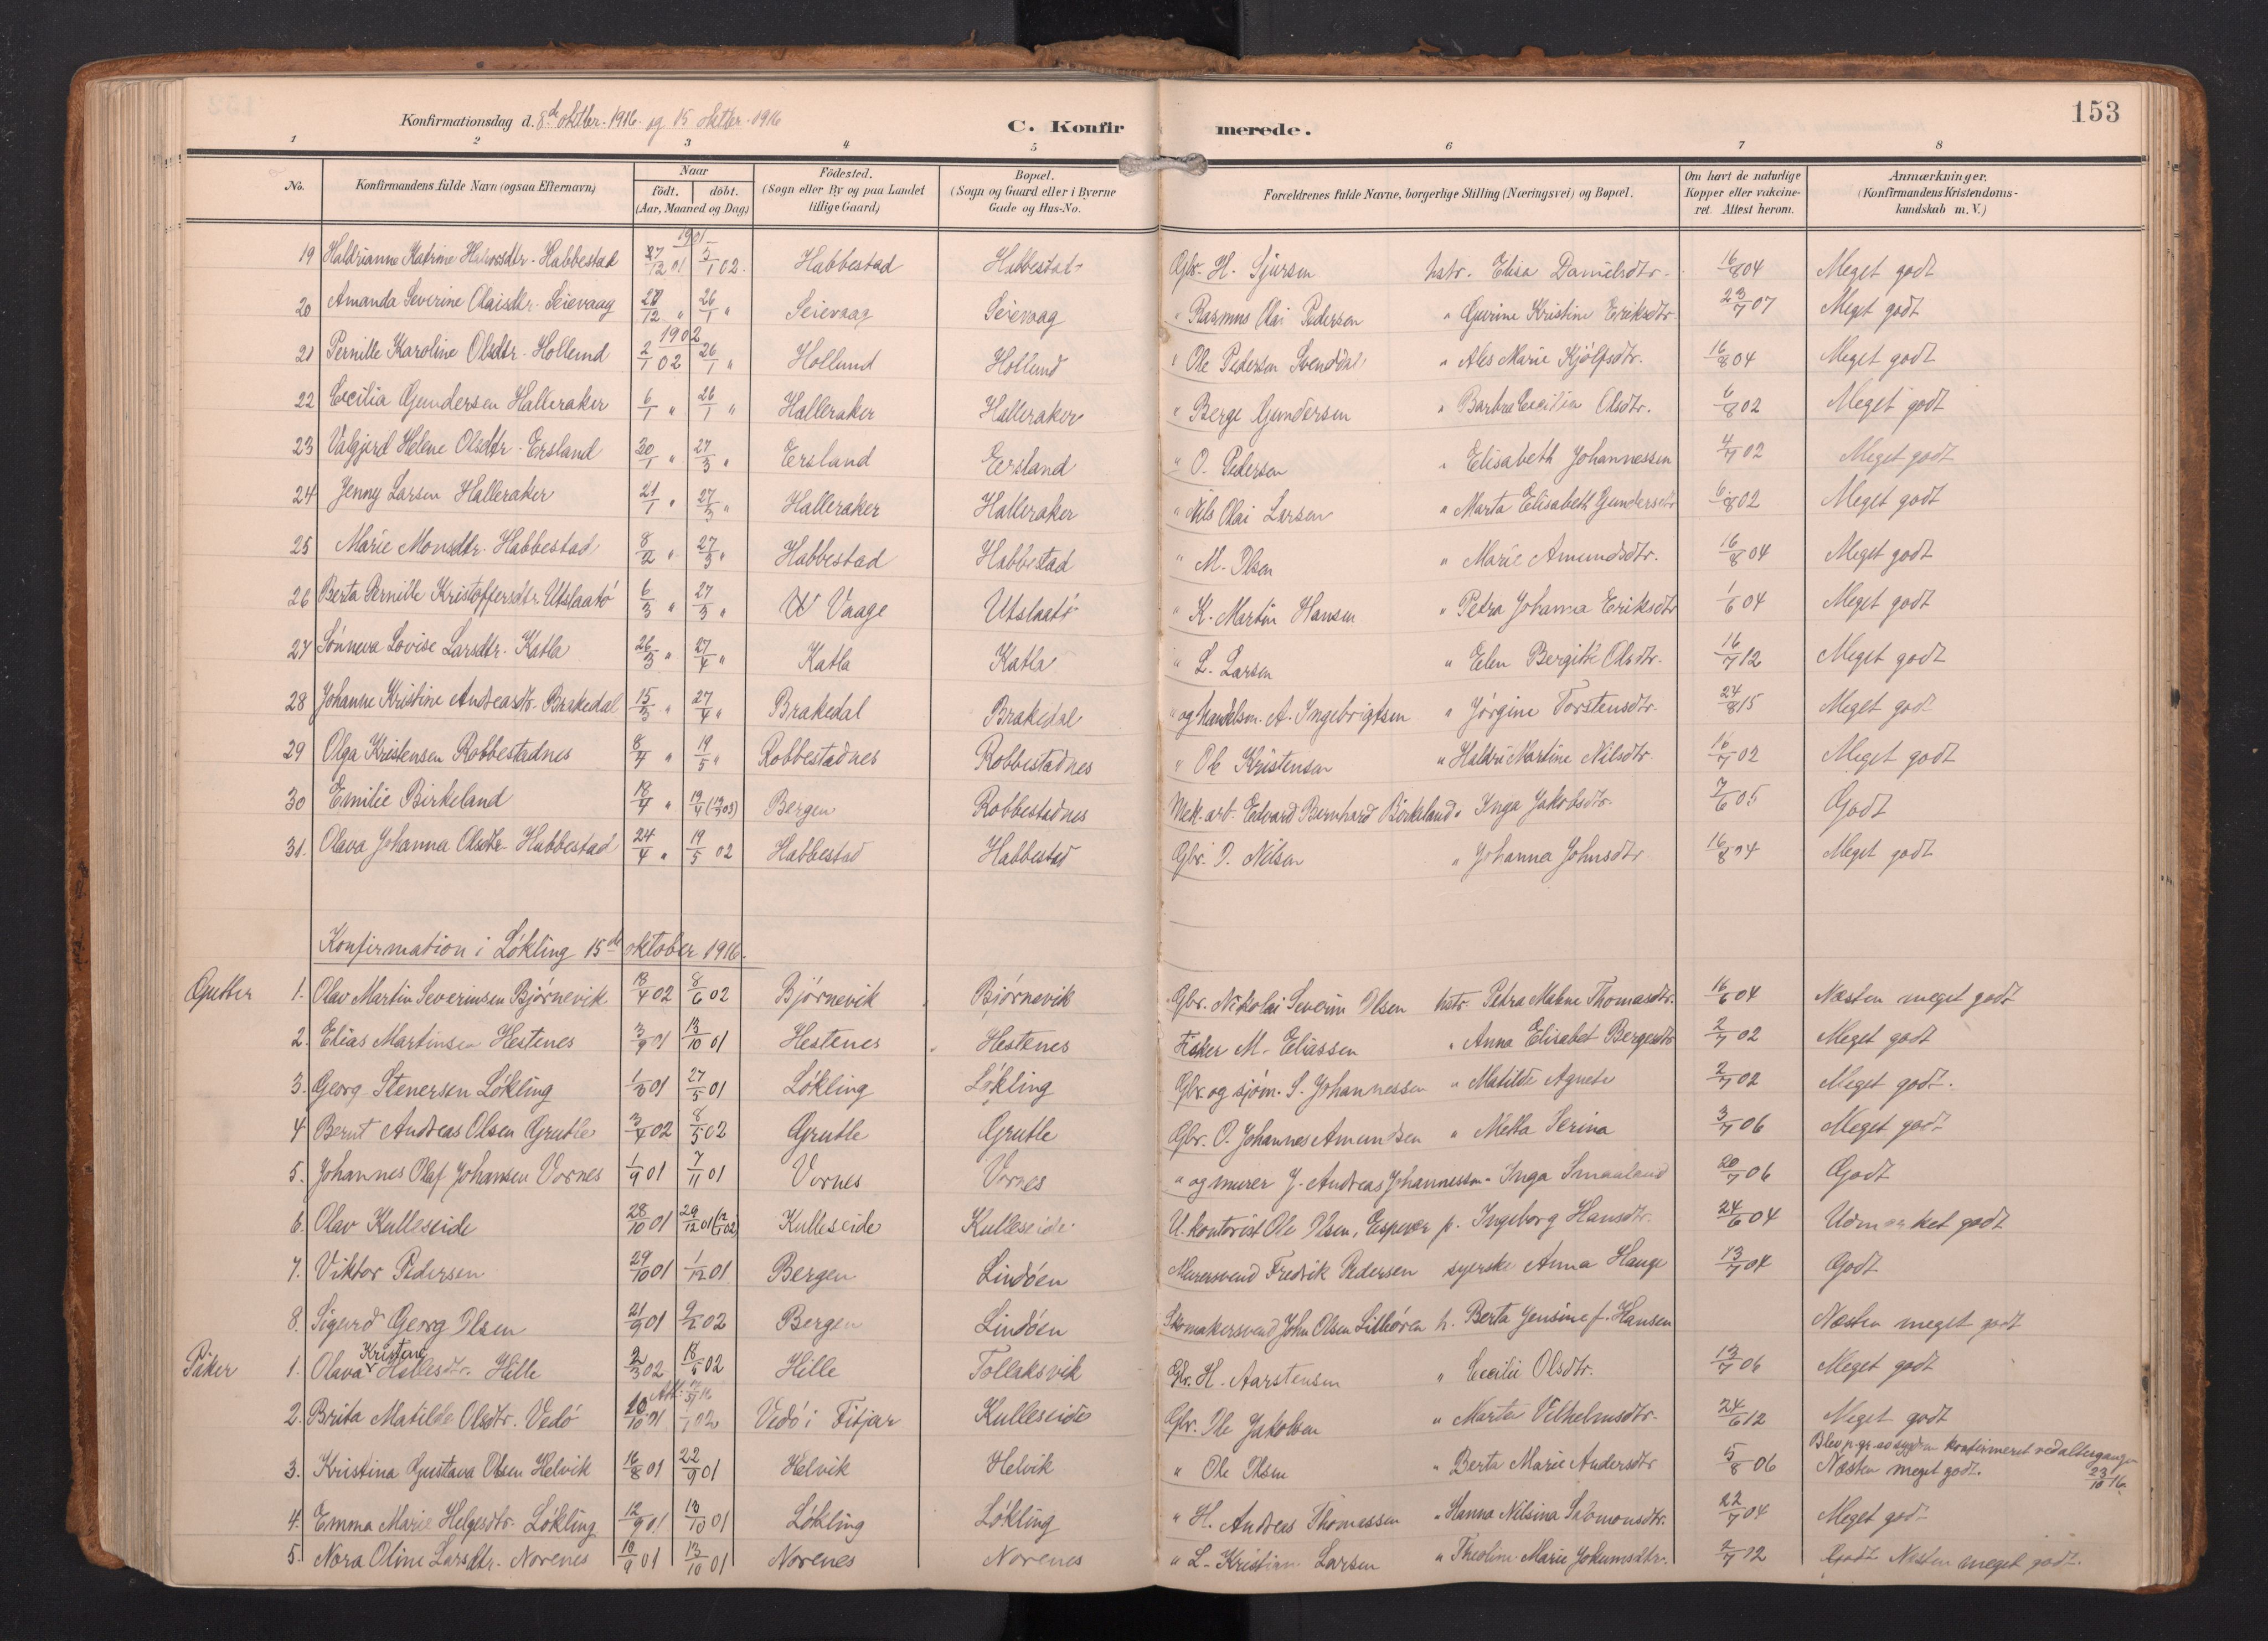 153
Konfirmationsdag d. 8de oktber. 1916 og 15 oktber. 1916
C. Konfirmerede.
1 2 3 4 5 6 7 8
No. Konfirmandens fulde Navn (ogsaa Efternavn) Naar födt. döbt. (Aar, Maaned og Dag) Födested. (Sogn eller By og paa Landet tillige Gaard) Bopæl. (Sogn og Gaard eller i Byerne Gade og Hus-No. Forældrenes fulde Navne, borgerlige Stilling (Næringsvei) og Bopæl. Om havt de naturlige Kopper eller vakcineret. Attest herom. Anmærkninger. (Konfirmandens Kristendomskundskab m. V.)
1901
19 Haldrianne Katrine Halvorsdtr. Habbestad 27/12 01 5/1 02. Habbestad Habbestad Gbr. H. Sjursen hstr. Elisa Danielsdtr. 16/8 04 Meget godt
20 Amanda Severine Olaisdtr. Seievaag 27/12 " 26/1 " Seievaag Seievaag " Rasmus Olai Pedersen " Gurine Kristine Eriksdtr 23/7 07 Meget godt
1902
21 Pernille Karoline Olsdtr. Hollund 2/1 02 26/1 " Hollund Hollund " Ole Pedersen Svenddal " Ales Marie Kjölfsdtr. 16/8 04 Meget godt
22 Cecilia Gundersen Halleraker 6/1 " 26/1 " Halleraker Halleraker " Berge Gundersen " Barbra Cecilia Olsdtr. 6/8 02 Meget godt
23 Valgjerd Helene Olsdtr. Ersland 30/1 " 27/3 " Eersland Eersland " O. Pedersen " Elisabeth Johannessen 4/7 02 Meget godt
24 Jenny Larsen Halleraker 21/1 " 27/3 " Halleraker Halleraker " Nils Olai Larsen " Marta Elisabeth Gundersdtr 6/8 02 Meget godt
25 Marie Monsdtr. Habbestad 8/2 " 27/3 " Habbestad Habbestad " M. Olsen " Marie Amundsdtr. 16/8 04 Meget godt
26 Berta Pernille Kristoffersdtr. Utslaatö 6/3 " 27/3 " Vaage Utslaatö " K. Martin Hansen " Petra Johanna Eriksdtr 1/6 04 Meget godt
27 Sönneva Lovise Larsdtr. Katla 26/3 " 27/4 " Katla Katla " L. Larsen " Elen Bergitte Olsdtr. 16/7 12 Meget godt
28 Johanne Kristine Andreasdtr. Brakedal 15/3 " 27/4 " Brakedal Brakedal " og Handelsm. A. Ingebrigtsen " Jörgine Torstensdtr. 24/8 15 Meget godt
29 Olga Kristensen Robbestadnes 8/4 " 19/5 " Robbestadnes Robbestadnes " Ole Kristensen " Haldri Martine Nilsdtr. 16/7 02 Meget godt
30 Emilie Birkeland 18/4 " Bergen Robbestadnes Mek. arb. Edvard Bernhard Birkeland " Inga Jakobsdtr. 7/6 05 Godt
31. Olava Johanna Olsdtr. Habbestad 24/4 " 19/5 02 Habbestad Habbestad Gbr. O. Nilsen " Johanna Johnsdtr. 16/8 04 Meget godt
Konfirmation i Lökling 15de oktober 1916.
Gutter 1. Olav Martin Severinsen Björnevik 13/4 02 8/6 02 Björnevik Björnevik Gbr. Nikolai Severin Olsen hstr. Petra Malene Thomasdtr. 16/6 04 Næsten meget godt
2. Elias Martinsen Hestenes 3/9 01 13/10 01 Hestenes Hestenes Fisker M. Eliassen " Anna Elisabet Bergesdtr 2/7 02 Meget godt
3. Georg Stenersen Lökling 1/5 01 27/5 01 Lökling Lökling Gbr. og sjöm. S. Johannessen " Matilde Agnete 2/7 02 Meget godt.
4 Bernt Andreas Olsen Grutle 3/4 02 8/5 02 Grutle Grutle Gbr. O. Johannes Amundsen " Metta Serina 3/7 06 Meget godt
5. Johannes Olaf Johansen Vornes 1/9 01 7/11 01 Vornes Vornes " og murer J. Andreas Johannessen " Inga Smaaland 20/7 06 Godt
6. Olav Kulleseide 28/10 01 29/12 01 Kulleseide Kulleseide U. kontorist Ole Olsen, Espevær p. Ingeborg Hansdtr. 24/6 04 Udmerket godt
7. Viktor Pedersen 29/10 01 1/12 01 Bergen Lindöen Murersvend Fredrik Pedersen syerske Anna Hauge 13/7 04 Godt
8. Sigurd Georg Olsen 21/9 01 9/2 02 Bergen Lindöen Skomakersvend John Olsen Lillören h. Berta Jensine f. Hansen Næsten meget godt
Kristene
Piker 1. Olava Hellesdtr. Hille 2/3 02 18/5 02 Hille Tollaksvik Gbr. H. Aarstensen " Cecilie Olsdtr. 13/7 06 Meget godt
2. Brita Matilde Olsdtr. Vedö 10/10 01 1/1 02 Vedö i Fitjar Kulleseide Gbr. Ole Jakobsen " Marta Vilhelmsdtr. 24/6 12 Meget godt
Blev p. gr. av sygdom konfirmeret ved altergangen 23/10 16.
3. Kristina Gustava Olsen Helvik 16/8 01 22/9 01 Helvik Helvik " Ole Olsen " Berta Marie Andersdtr 5/8 06 Næsten meget godt.
4. Emma Marie Helgesdtr. Lökling 12/9 01 13/10 01 Lökling Lökling " H. Andreas Thomassen " Hanna Nilsina Salomonsdtr. 22/7 04 Meget godt
5. Nora Oline Larsdtr. Norenes 10/9 01 13/10 01 Norenes Norenes " L. Kristian Larsen " Theoline Marie Jokumsdtr. 2/7 12 Godt Næsten meget godt.